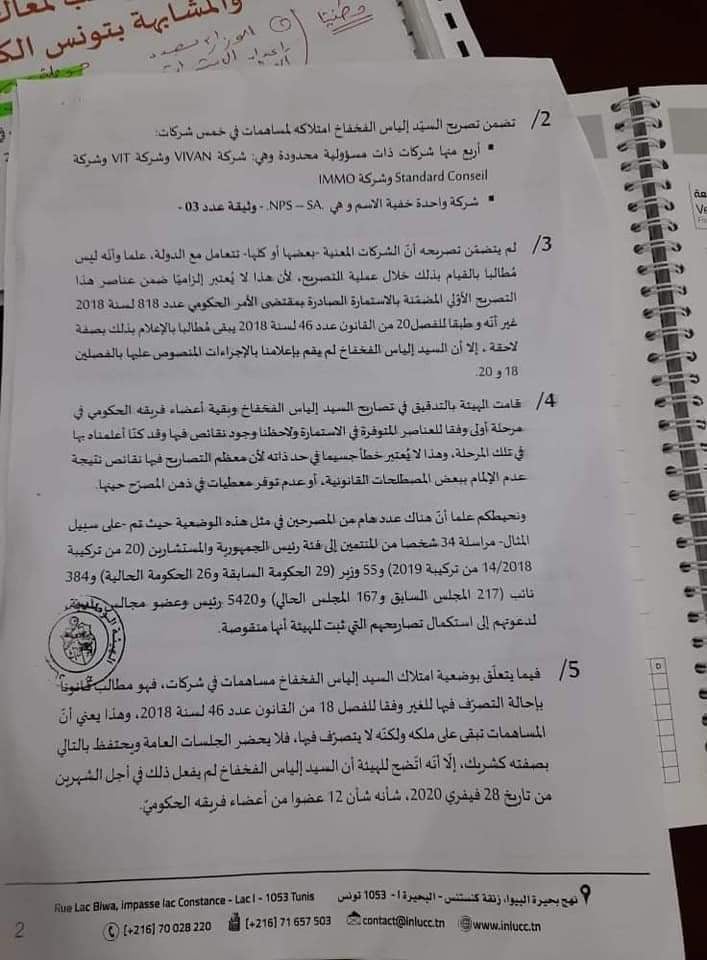 والمشابهة بتونس الك
وطنيّا
2/ تضمن تصريح السيّد إلياس الفخفاخ امتلاكه لمساهمات في خمس شركات:
▪ أربع منها شركات ذات مسؤولية محدودة وهي: شركة VIVAN وشركة VIT وشركة
Standard Conseil وشركة IMMO
▪ شركة واحدة خفية الاسم و هي .NPS – SA. - وثيقة عدد 03 -
3/ لم يتضمّن تصريحه أنّ الشركات المعنية -بعضها أو كلها- تتعامل مع الدولة، علما وأنّه ليس
مُطالبا بالقيام بذلك خلال عملية التصريح، لأن هذا لا يُعتبر إلزاميّا ضمن عناصر هذا
التصريح الأوّلي المضمّنة بالاستمارة الصادرة بمقتضى الأمر الحكومي عدد 818 لسنة 2018
غير أنّه و طبقا للفصل20 من القانون عدد 46 لسنة 2018 يبقى مُطالبا بالإعلام بذلك بصفة
لاحقة ، إلا أن السيد إلياس الفخفاخ لم يقم بإعلامنا بالإجراءات المنصوص عليها بالفصلين
18 و 20.
4/ قامت الهيئة بالتدقيق في تصاريح السيد إلياس الفخفاخ وبقية أعضاء فريقه الحكومي في
مرحلة أولى وفقا للعناصر المتوفرة في الاستمارة ولاحظنا وجود نقائص فيها وقد كنّا أعلمناه بها
في تلك المرحلة، وهذا لا يُعتبر خطأ جسيما في حد ذاته لأن معظم التصاريح فيها نقائص نتيجة
عدم الإلمام ببعض المصطلحات القانونية، أو عدم توفر معطيات في ذهن المصرّح حينها.
ونحيطكم علما أنّ هناك عدد هام من المصرحين في مثل هذه الوضعية حيث تم -على سبيل
المثال- مراسلة 34 شخصا من المنتمين إلى فئة رئيس الجمهورية والمستشارين (20 من تركيبة
14/2018 من تركيبة 2019) و55 وزير (29 الحكومة السابقة و26 الحكومة الحالية) و384
نائب (217 المجلس السابق و167 المجلس الحالي) و5420 رئيس وعضو مجالس
لدعوتهم إلى استكمال تصاريحهم التي ثبت للهيئة أنها منقوصة.
5/ فيما يتعلّق بوضعية امتلاك السيد إلياس الفخفاخ مساهمات في شركات، فهو مطالب قانونا
بإحالة التصرّف فيها للغير وفقا للفصل 18 من القانون عدد 46 لسنة 2018، وهذا يعني أنّ
المساهمات تبقى على ملكه ولكنّه لا يتصرّف فيها، فلا يحضر الجلسات العامة ويحتفظ بالتالي
بصفته كشريك، إلّا أنّه اتّضح للهيئة أن السيد إلياس الفخفاخ لم يفعل ذلك في أجل الشهرين
من تاريخ 28 فيفري 2020، شأنه شأن 12 عضوا من أعضاء فريقه الحكوميّ.
نهج بحيرة البيوا، زنقة كنستنس - البحيرة I - 1053 تونس Rue Lac Biwa, impasse lac Constance - Lac I - 1053 Tunis
[+216] 70 028 220 [+216] 71 657 503 contact@inlucc.tn www.inlucc.tn
2